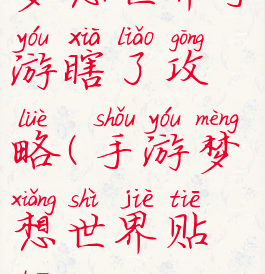 yóu xiā liǎo gōng
游瞎了攻
lüè shǒu yóu mèng
略(手游梦
xiǎng shì jiè tiē
想世界贴